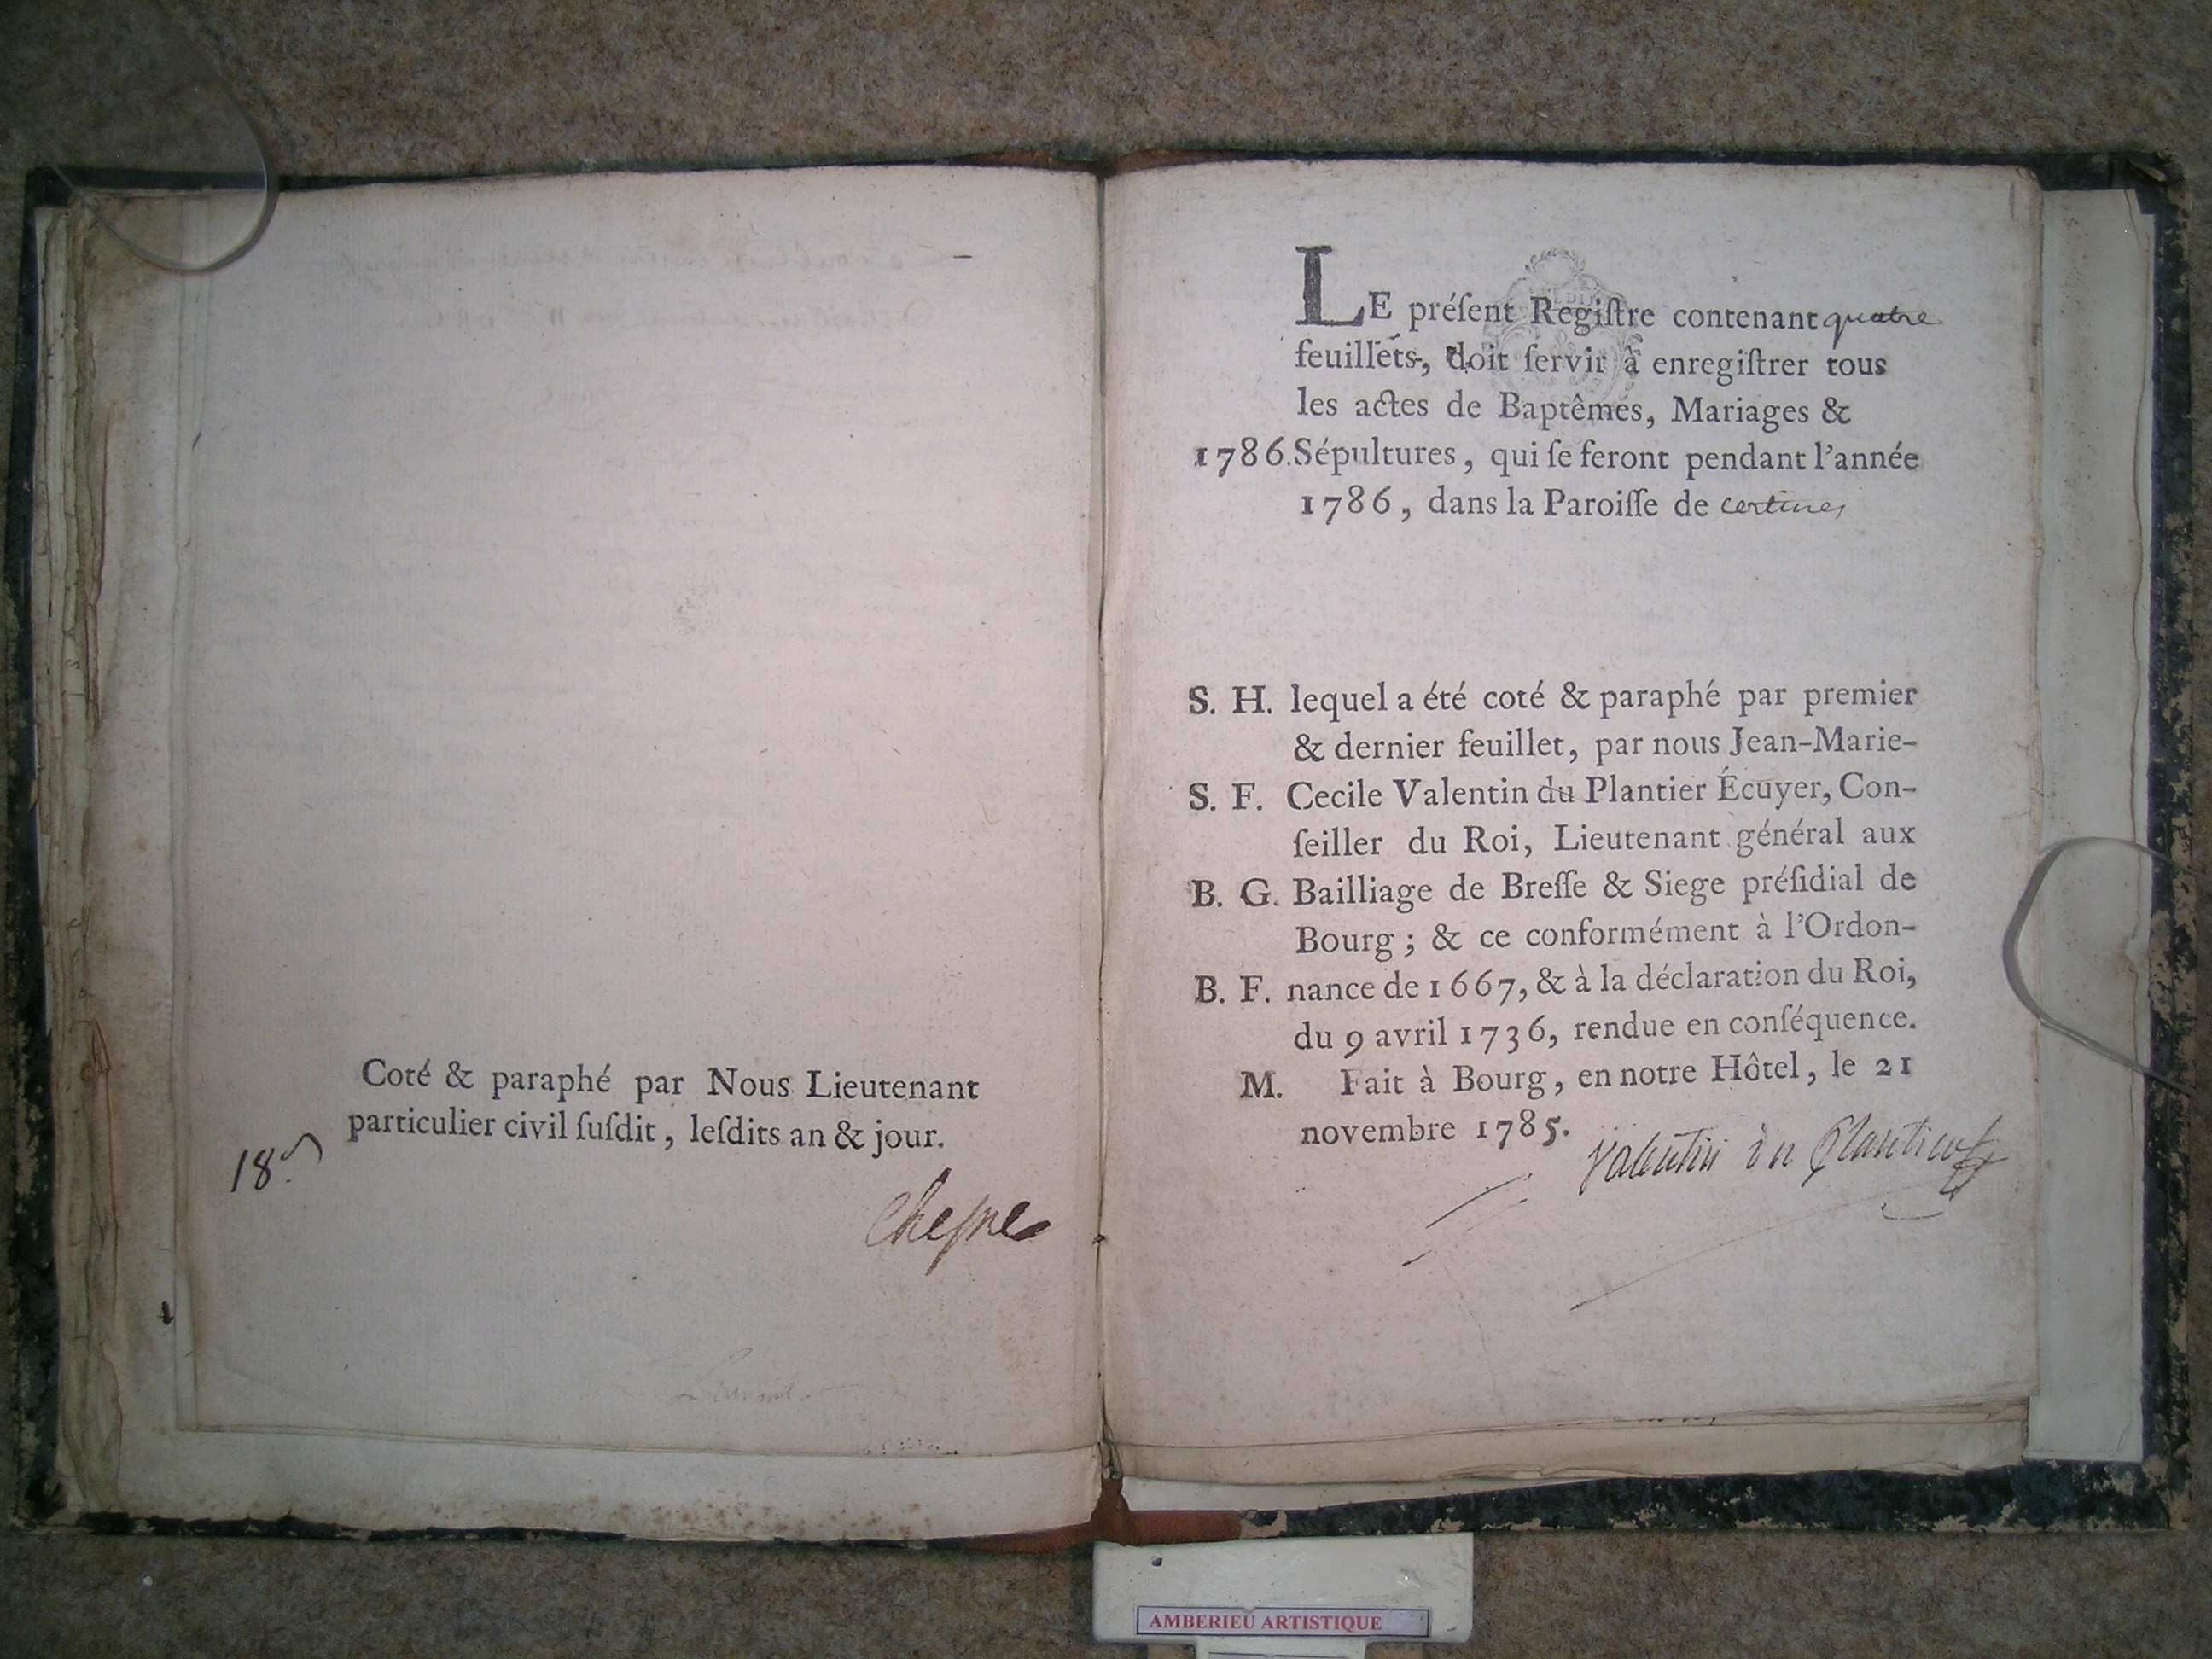 Coté & paraphé par Nous Lieutenant
particulier civil ſuſdit, leſdits an & jour.
18.
Cheſne
LE préſent Regiſtre contenant quatre
feuillets, doit ſervir à enregiſtrer tous
les actes de Baptêmes, Mariages &
1786. Sépultures, qui ſe feront pendant l'année
1786, dans la Paroiſſe de certines
S. H. lequel a été coté & paraphé par premier
& dernier feuillet, par nous Jean-Marie-
S. F. Cecile Valentin du Plantier Écuyer, Con-
ſeiller du Roi, Lieutenant général aux
B. G. Bailliage de Breſſe & Siege préſidial de
Bourg; & ce conformément à l'Ordon-
B. F. nance de 1667, & à la déclaration du Roi,
du 9 avril 1736, rendue en conſéquence.
M. Fait à Bourg, en notre Hôtel, le 21
novembre 1785.
Valentin du Plantier
AMBERIEU ARTISTIQUE